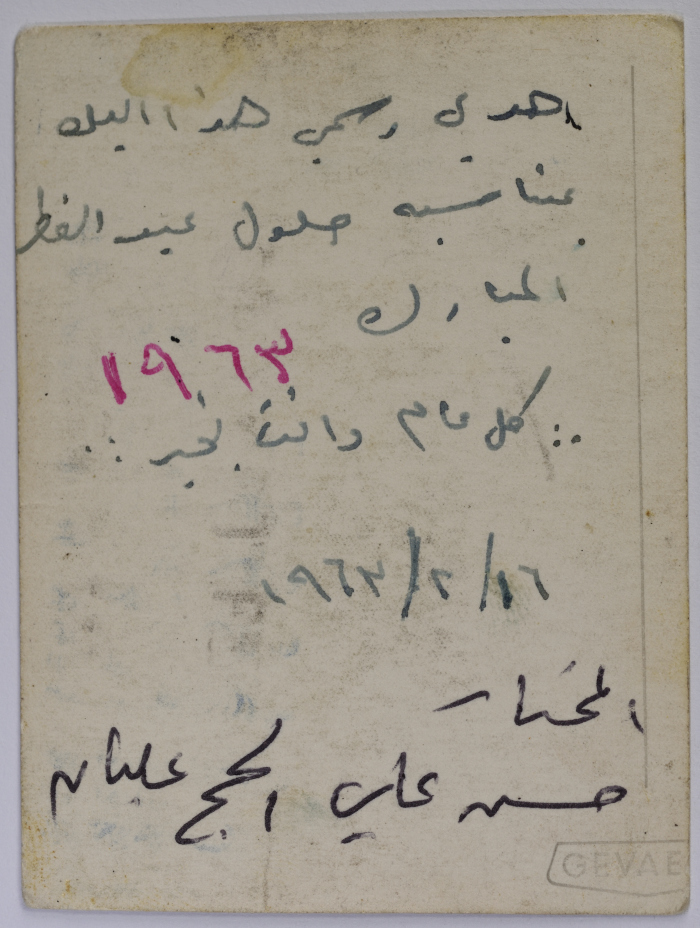 اهدي رسمي هذا اليك
بمناسبه حلول عيد الفطر
المبارك
١٩٦٣
كل عام وانت بخير
١٦/٢/١٩٦٣
المختار
حسن علي الحج عليان
GEVAE